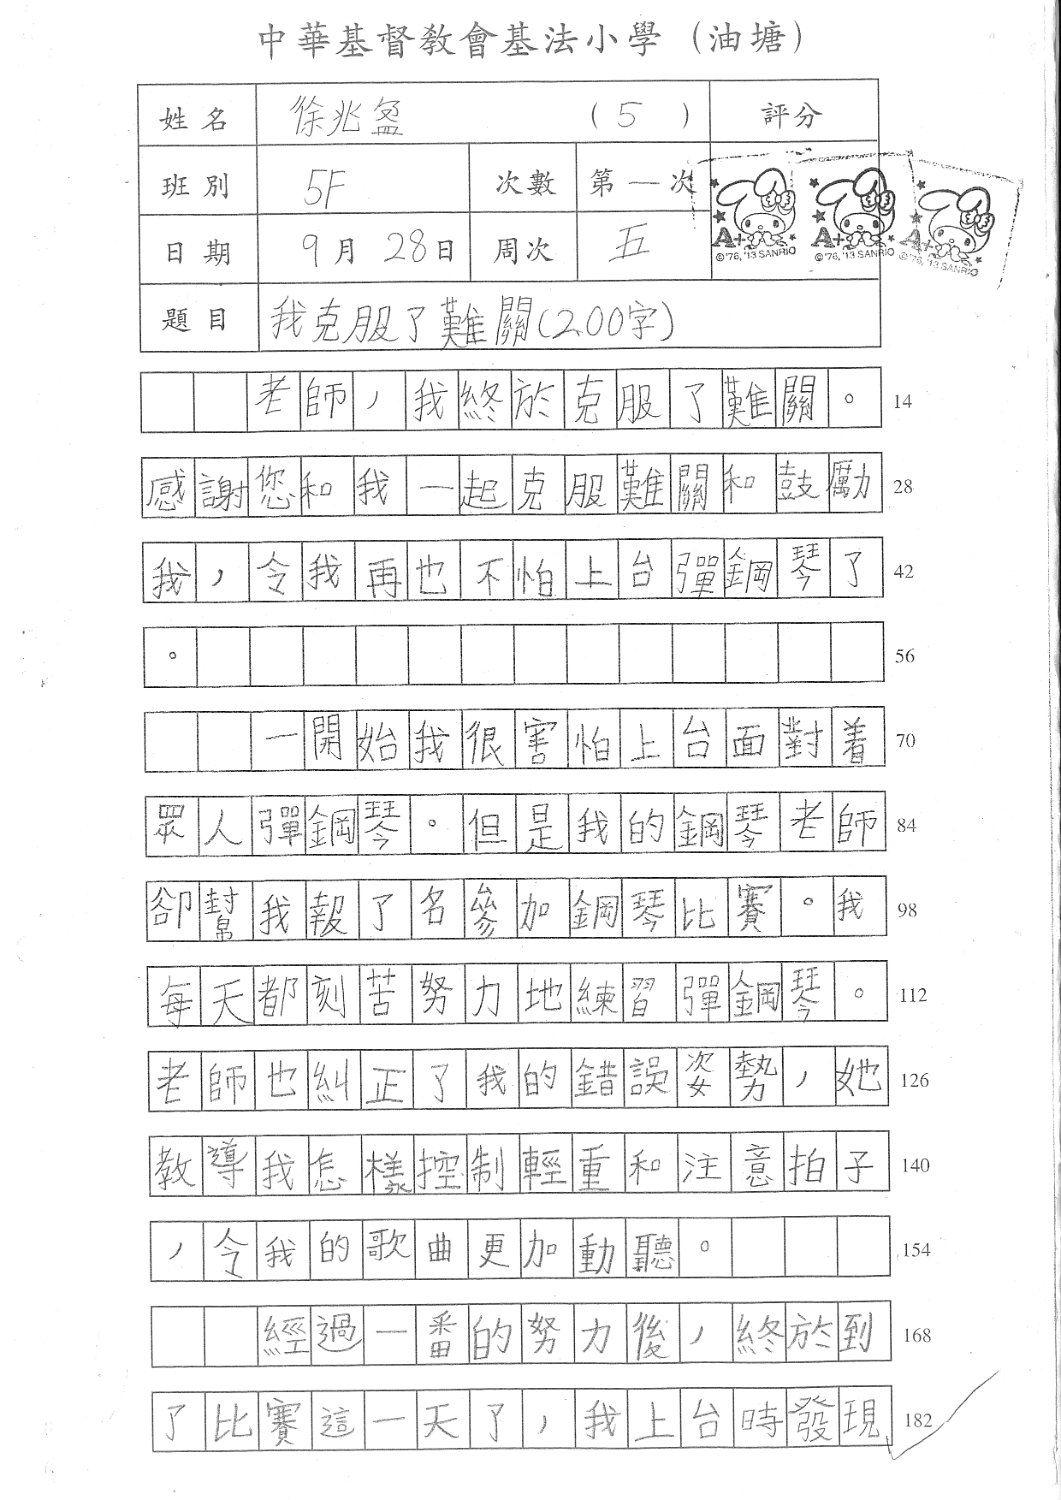 中華基督教會基法小學（油塘）
姓名 徐兆盈 （5） 評分
班別 5F 次數 第一次
日期 9月28日 周次 五
A+ A+ A+
©'76,'13 SANRIO ©'76,'13 SANRIO ©'76,'13 SANRIO
題目 我克服了難關(200字)
老師，我終於克服了難關。 14
感謝您和我一起克服難關和鼓勵 28
我，令我再也不怕上台彈鋼琴了 42
。 56
一開始我很害怕上台面對着 70
眾人彈鋼琴。但是我的鋼琴老師 84
卻幫我報了名參加鋼琴比賽。我 98
每天都刻苦努力地練習彈鋼琴。 112
老師也糾正了我的錯誤姿勢，她 126
教導我怎樣控制輕重和注意拍子 140
，令我的歌曲更加動聽。 154
經過一番的努力後，終於到 168
了比賽這一天了，我上台時發現 182